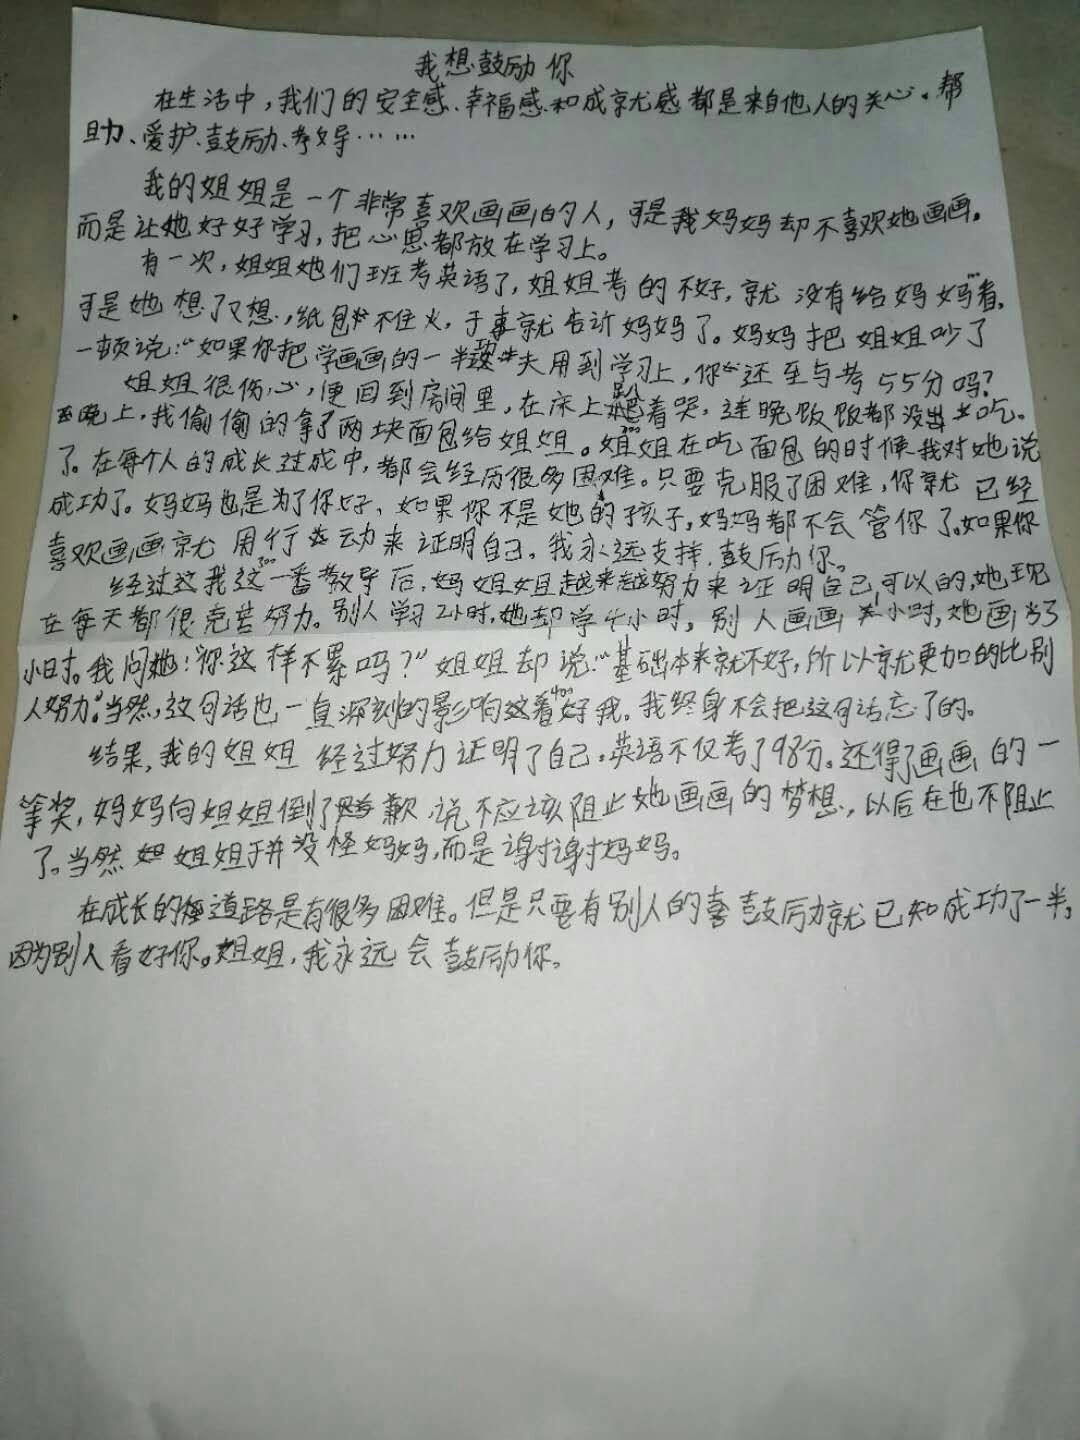 我想鼓励你
在生活中，我们的安全感、幸福感和成就感都是来自他人的关心。帮
助、爱护、鼓励、孝导……
我的姐姐是一个非常喜欢画画的人，于是我妈妈却不喜欢她画画。
而是让她好好学习，把心思都放在学习上。
有一次，姐姐她们班考英语了，姐姐考的不好，就没有给妈妈看。
于是她想了又想，纸包不住火，于事就告诉妈妈了。妈妈把姐姐吵了
一顿说：“如果你把学画画的一半功夫用到学习上，你还至与考55分吗？
姐姐很伤心，便回到房间里，在床上趴着哭，连晚饭饭都没出去吃。
晚上，我偷偷的拿了两块面包给姐姐。姐姐在吃面包的时候我对她说
了。在每个人的成长过成中，都会经历很多困难。只要克服了困难，你就已经
成功了。妈妈也是为了你好、如果你不是她的孩子，妈妈都不会管你了。如果你
喜欢画画就用行动来证明自己。我永远支持、鼓励你。
经过这我这一番教导后，妈姐姐越来越努力来证明自己，可以的，她现
在每天都很克苦努力。别人学习2小时，她却学4小时，别人画画小时，她画当了
小时。我问她：“你这样不累吗？”姐姐却说：“基础本来就不好，所以就更加的比别
人努力”。当然，这句话也一直深刻的影响这着好我。我终身不会把这句话忘了的。
结果，我的姐姐经过努力证明了自己。英语不仅考了98分。还得了画画的一
等奖，妈妈向姐姐倒了歉，说不应该阻止她画画的梦想，以后在也不阻止
了。当然姐姐于并没怪妈妈，而是谢谢妈妈。
在成长的道路是有很多困难。但是只要有别人的喜鼓励就已知成功了一半，
因为别人看好你。姐姐，我永远会鼓励你。